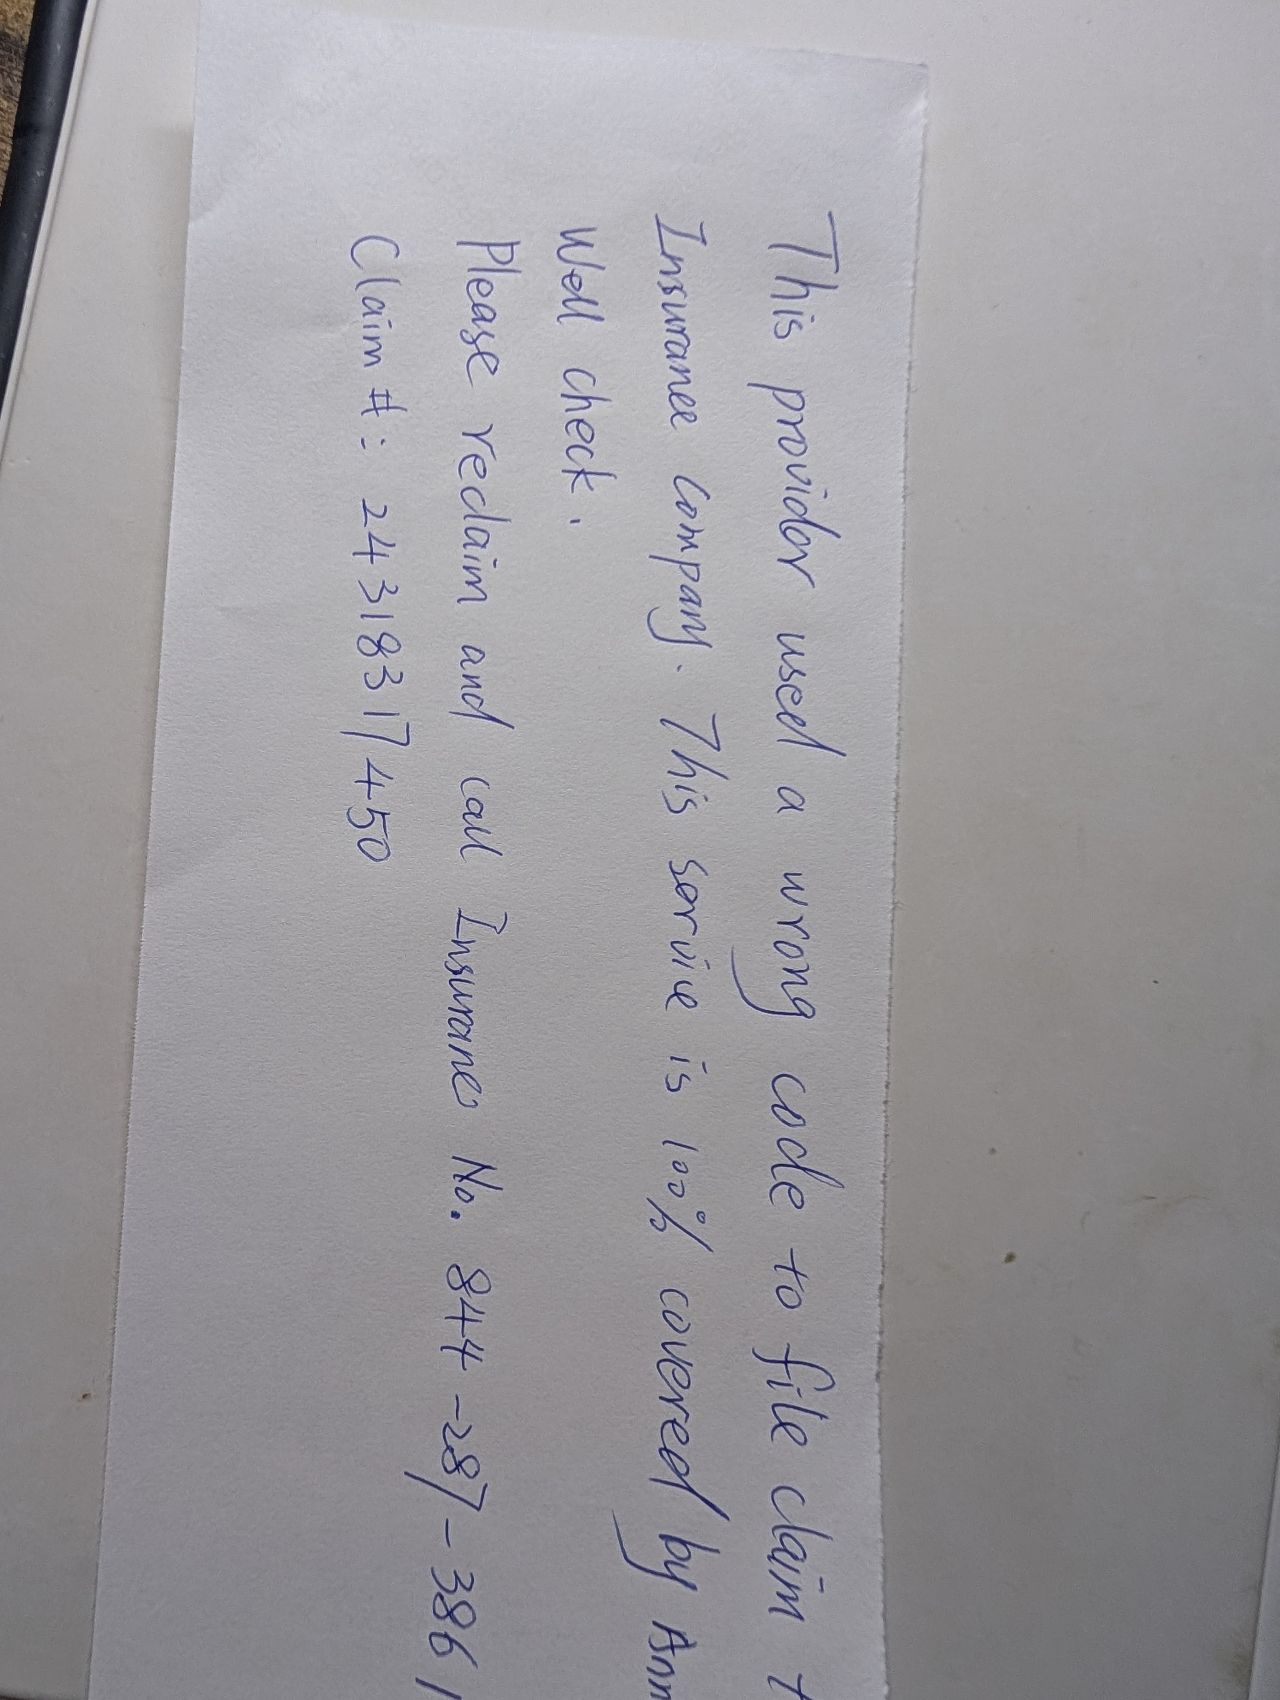 This provider used a wrong code to file claim t
Insurance company. This service is 100% covered by Ann
Well check.
Please reclaim and call Insurance No. 844-287-3861
Claim #: 24318317450